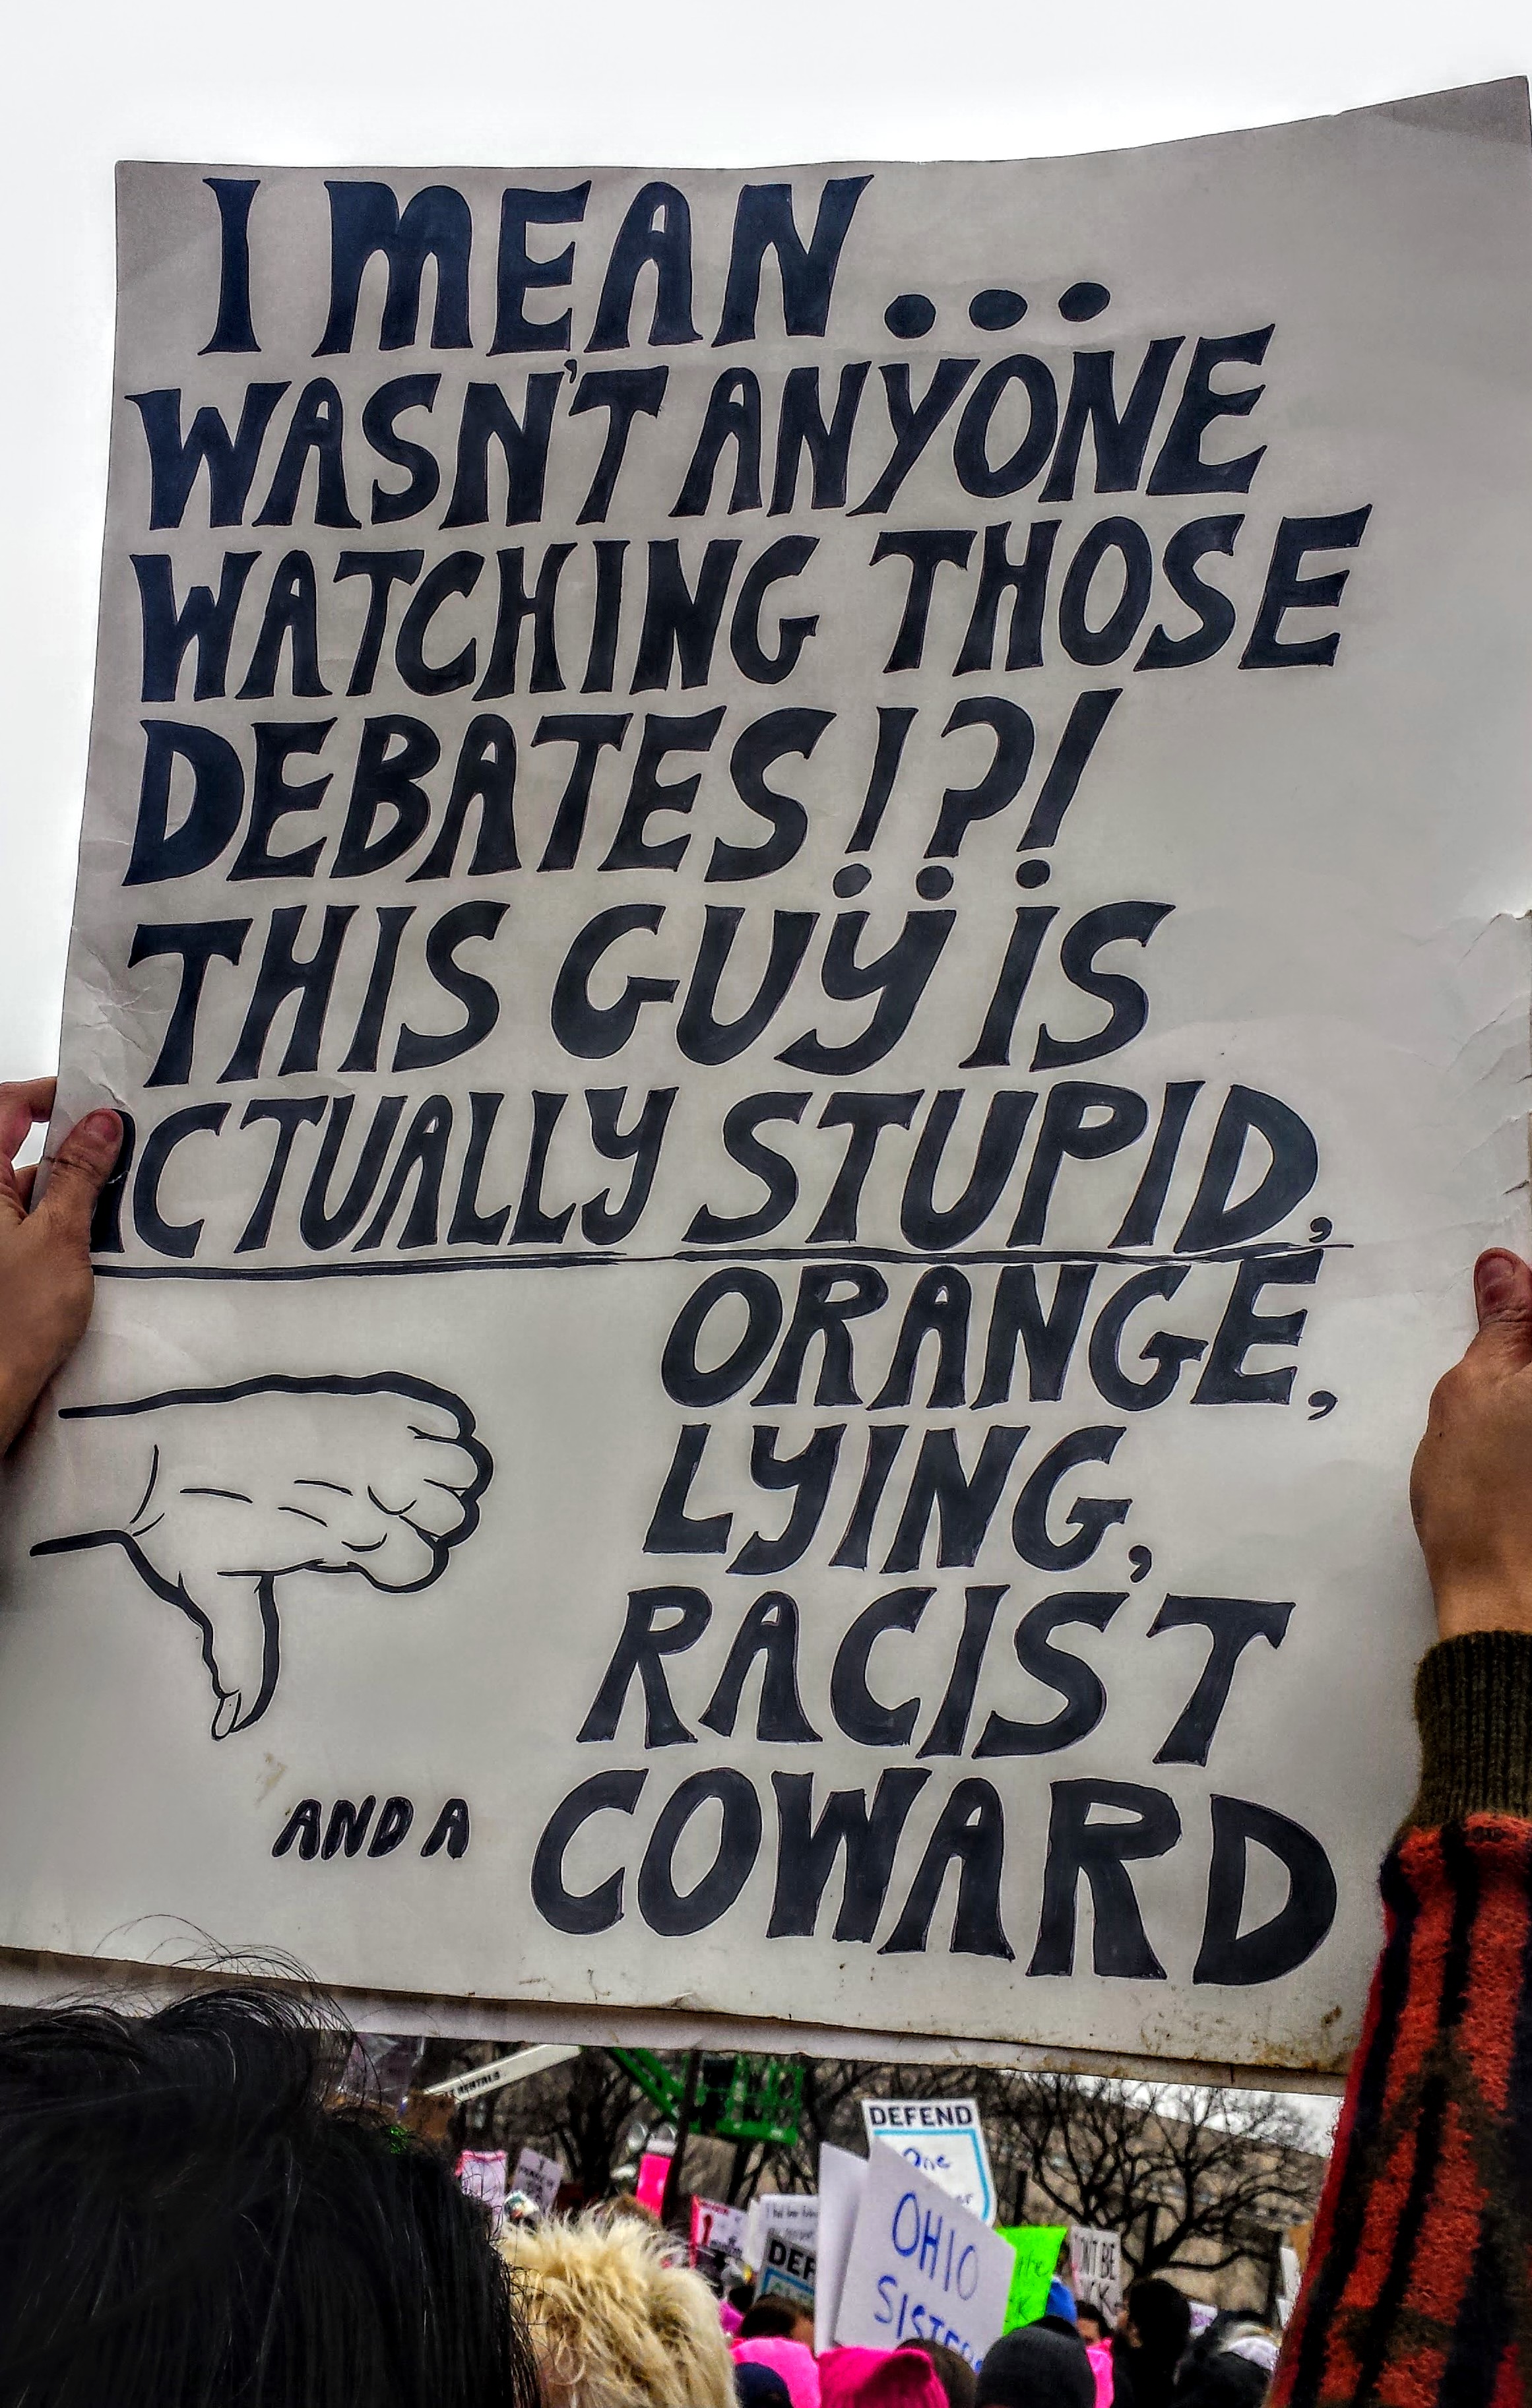 I MEAN...
WASN'T ANYONE
WATCHING THOSE
DEBATES!?!
THIS GUY IS
ACTUALLY STUPID,
ORANGE,
LYING,
RACIST
AND A COWARD
RENTALS
DEFEND
One
OHIO
SISTERS
DEF
the